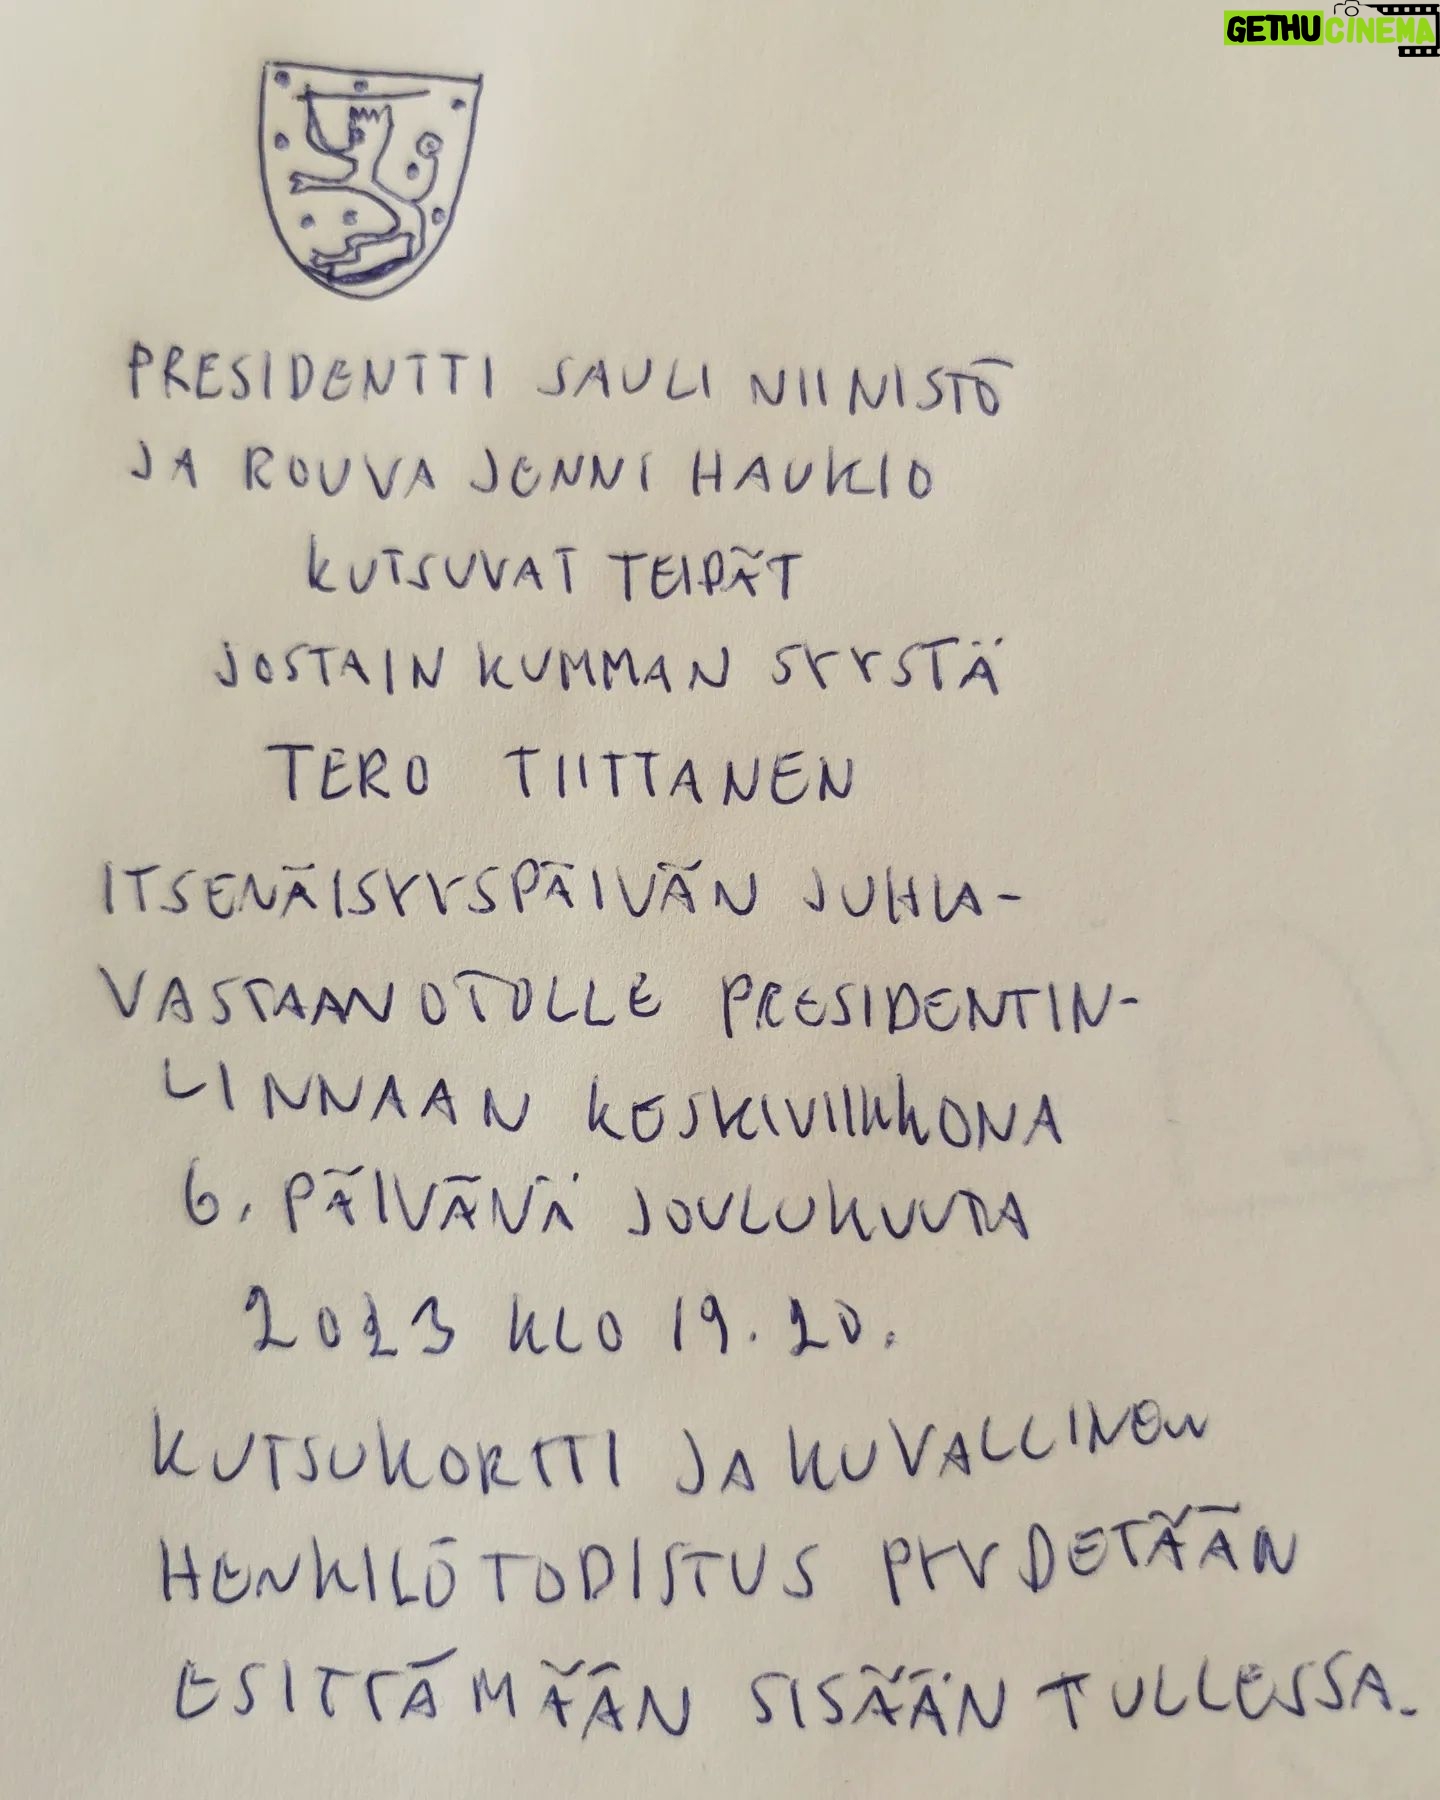 GETHUCINEMA
PRESIDENTTI SAULI NIINISTÖ
JA ROUVA JENNI HAUKIO
KUTSUVAT TEIDÄT
JOSTAIN KUMMAN SYYSTÄ
TERO TIITTANEN
ITSENÄISYYSPÄIVÄN JUHLA-
VASTAANOTOLLE PRESIDENTIN-
LINNAAN KESKIVIIKKONA
6. PÄIVÄNÄ JOULUKUUTA
2023 KLO 19.20.
KUTSUKORTTI JA KUVALLINEN
HENKILÖTODISTUS PYYDETÄÄN
ESITTÄMÄÄN SISÄÄN TULLESSA.